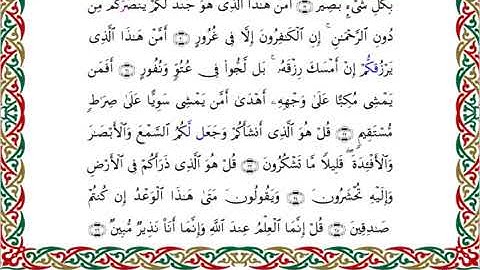 بِكُلِّ شَىْءٍۭ بَصِيرٌ ۝١٩ أَمَّنْ هَـٰذَا ٱلَّذِى هُوَ جُندٌ لَّكُمْ يَنصُرُكُم مِّن
دُونِ ٱلرَّحْمَـٰنِ ۚ إِنِ ٱلْكَـٰفِرُونَ إِلَّا فِى غُرُورٍ ۝٢٠ أَمَّنْ هَـٰذَا ٱلَّذِى
يَرْزُقُكُمْ إِنْ أَمْسَكَ رِزْقَهُۥ ۚ بَل لَّجُّوا۟ فِى عُتُوٍّ وَنُفُورٍ ۝٢١ أَفَمَن
يَمْشِى مُكِبًّا عَلَىٰ وَجْهِهِۦٓ أَهْدَىٰٓ أَمَّن يَمْشِى سَوِيًّا عَلَىٰ صِرَٰطٍ
مُّسْتَقِيمٍ ۝٢٢ قُلْ هُوَ ٱلَّذِىٓ أَنشَأَكُمْ وَجَعَلَ لَكُمُ ٱلسَّمْعَ وَٱلْأَبْصَـٰرَ
وَٱلْأَفْـِٔدَةَ ۖ قَلِيلًا مَّا تَشْكُرُونَ ۝٢٣ قُلْ هُوَ ٱلَّذِى ذَرَأَكُمْ فِى ٱلْأَرْضِ
وَإِلَيْهِ تُحْشَرُونَ ۝٢٤ وَيَقُولُونَ مَتَىٰ هَـٰذَا ٱلْوَعْدُ إِن كُنتُمْ
صَـٰدِقِينَ ۝٢٥ قُلْ إِنَّمَا ٱلْعِلْمُ عِندَ ٱللَّهِ وَإِنَّمَآ أَنَا۠ نَذِيرٌ مُّبِينٌ ۝٢٦